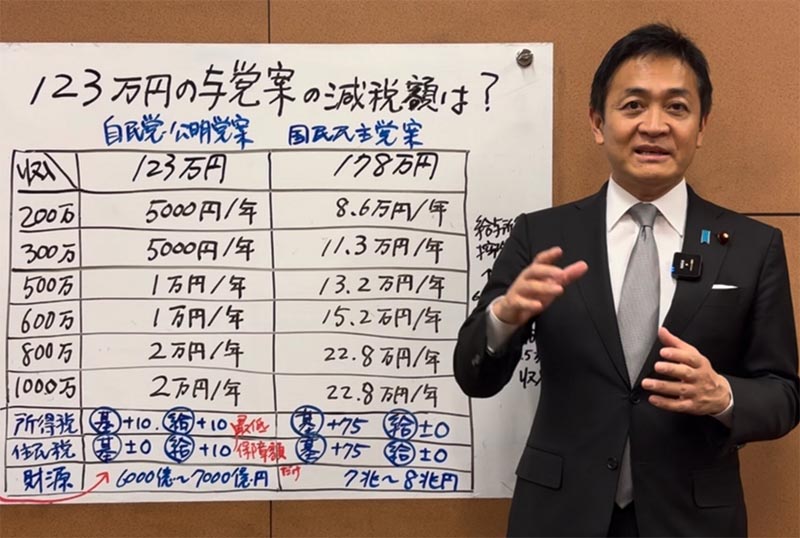 123万円の与党案の減税額は?
自民党・公明党案 国民民主党案
収入 123万円 178万円
200万 5000円/年 8.6万円/年
300万 5000円/年 11.3万円/年
500万 1万円/年 13.2万円/年
600万 1万円/年 15.2万円/年
800万 2万円/年 22.8万円/年
1000万 2万円/年 22.8万円/年
所得税 基+10. 給+10 最低 基+75 給±0
住民税 基±0 給+10 保障額 基+75 給±0
財源 6000億~7000億円 だけ 7兆~8兆円
給与所
控除
収